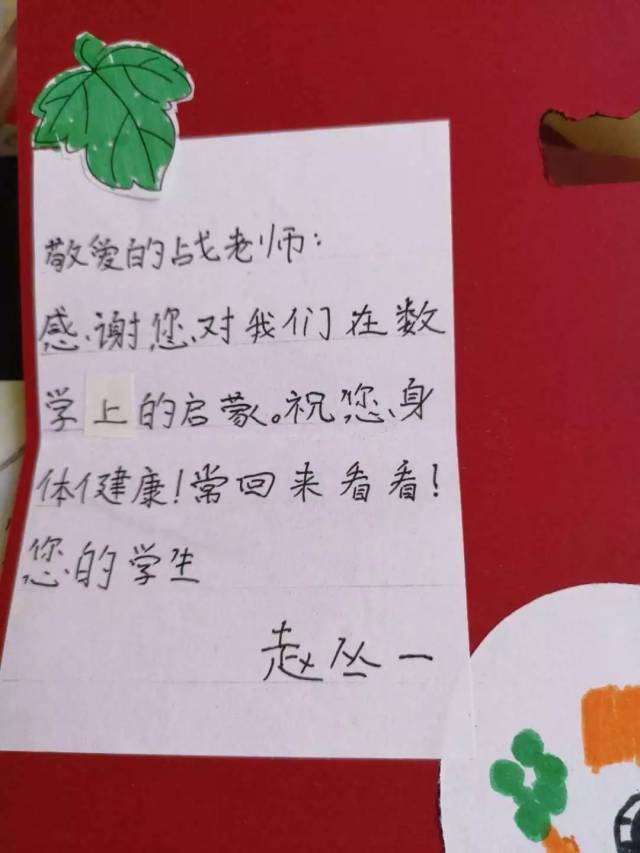 敬爱的战老师：
感谢您对我们在数
学上的启蒙。祝您身
体健康！常回来看看！
您的学生
赵丛一